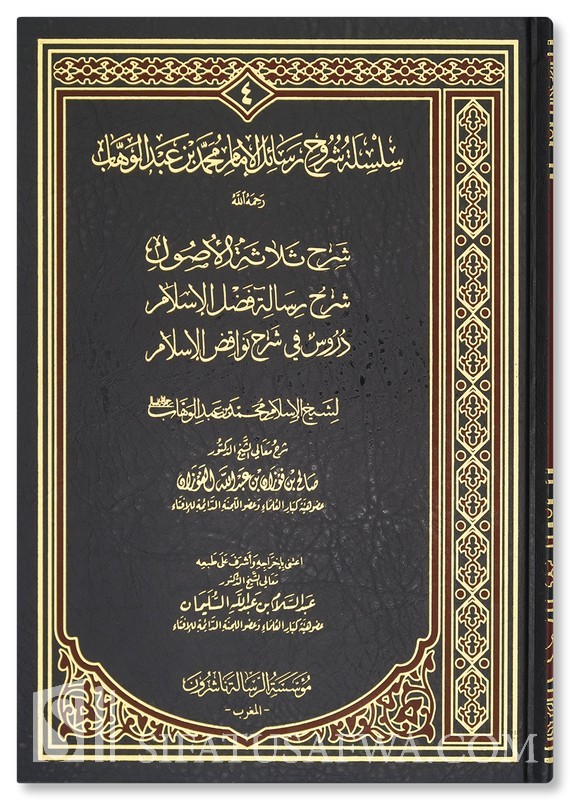 ٤
سلسلة شروح رسائل الإمام محمد بن عبد الوهاب
رحمه الله
شرح ثلاثة الأصول
شرح رسالة فضل الإسلام
دروس في شرح نواقض الإسلام
لشيخ الإسلام محمد بن عبد الوهاب
شرح معالي الشيخ الدكتور
صالح بن فوزان بن عبد الله الفوزان
عضو هيئة كبار العلماء وعضو اللجنة الدائمة للإفتاء
اعتنى بإخراجه وأشرف على طبعه
معالي الشيخ الدكتور
عبد السلام بن عبد الله السليمان
عضو هيئة كبار العلماء وعضو اللجنة الدائمة للإفتاء
مؤسسة الرسالة ناشرون
- المغرب -
SIFATUSAFWA.COM